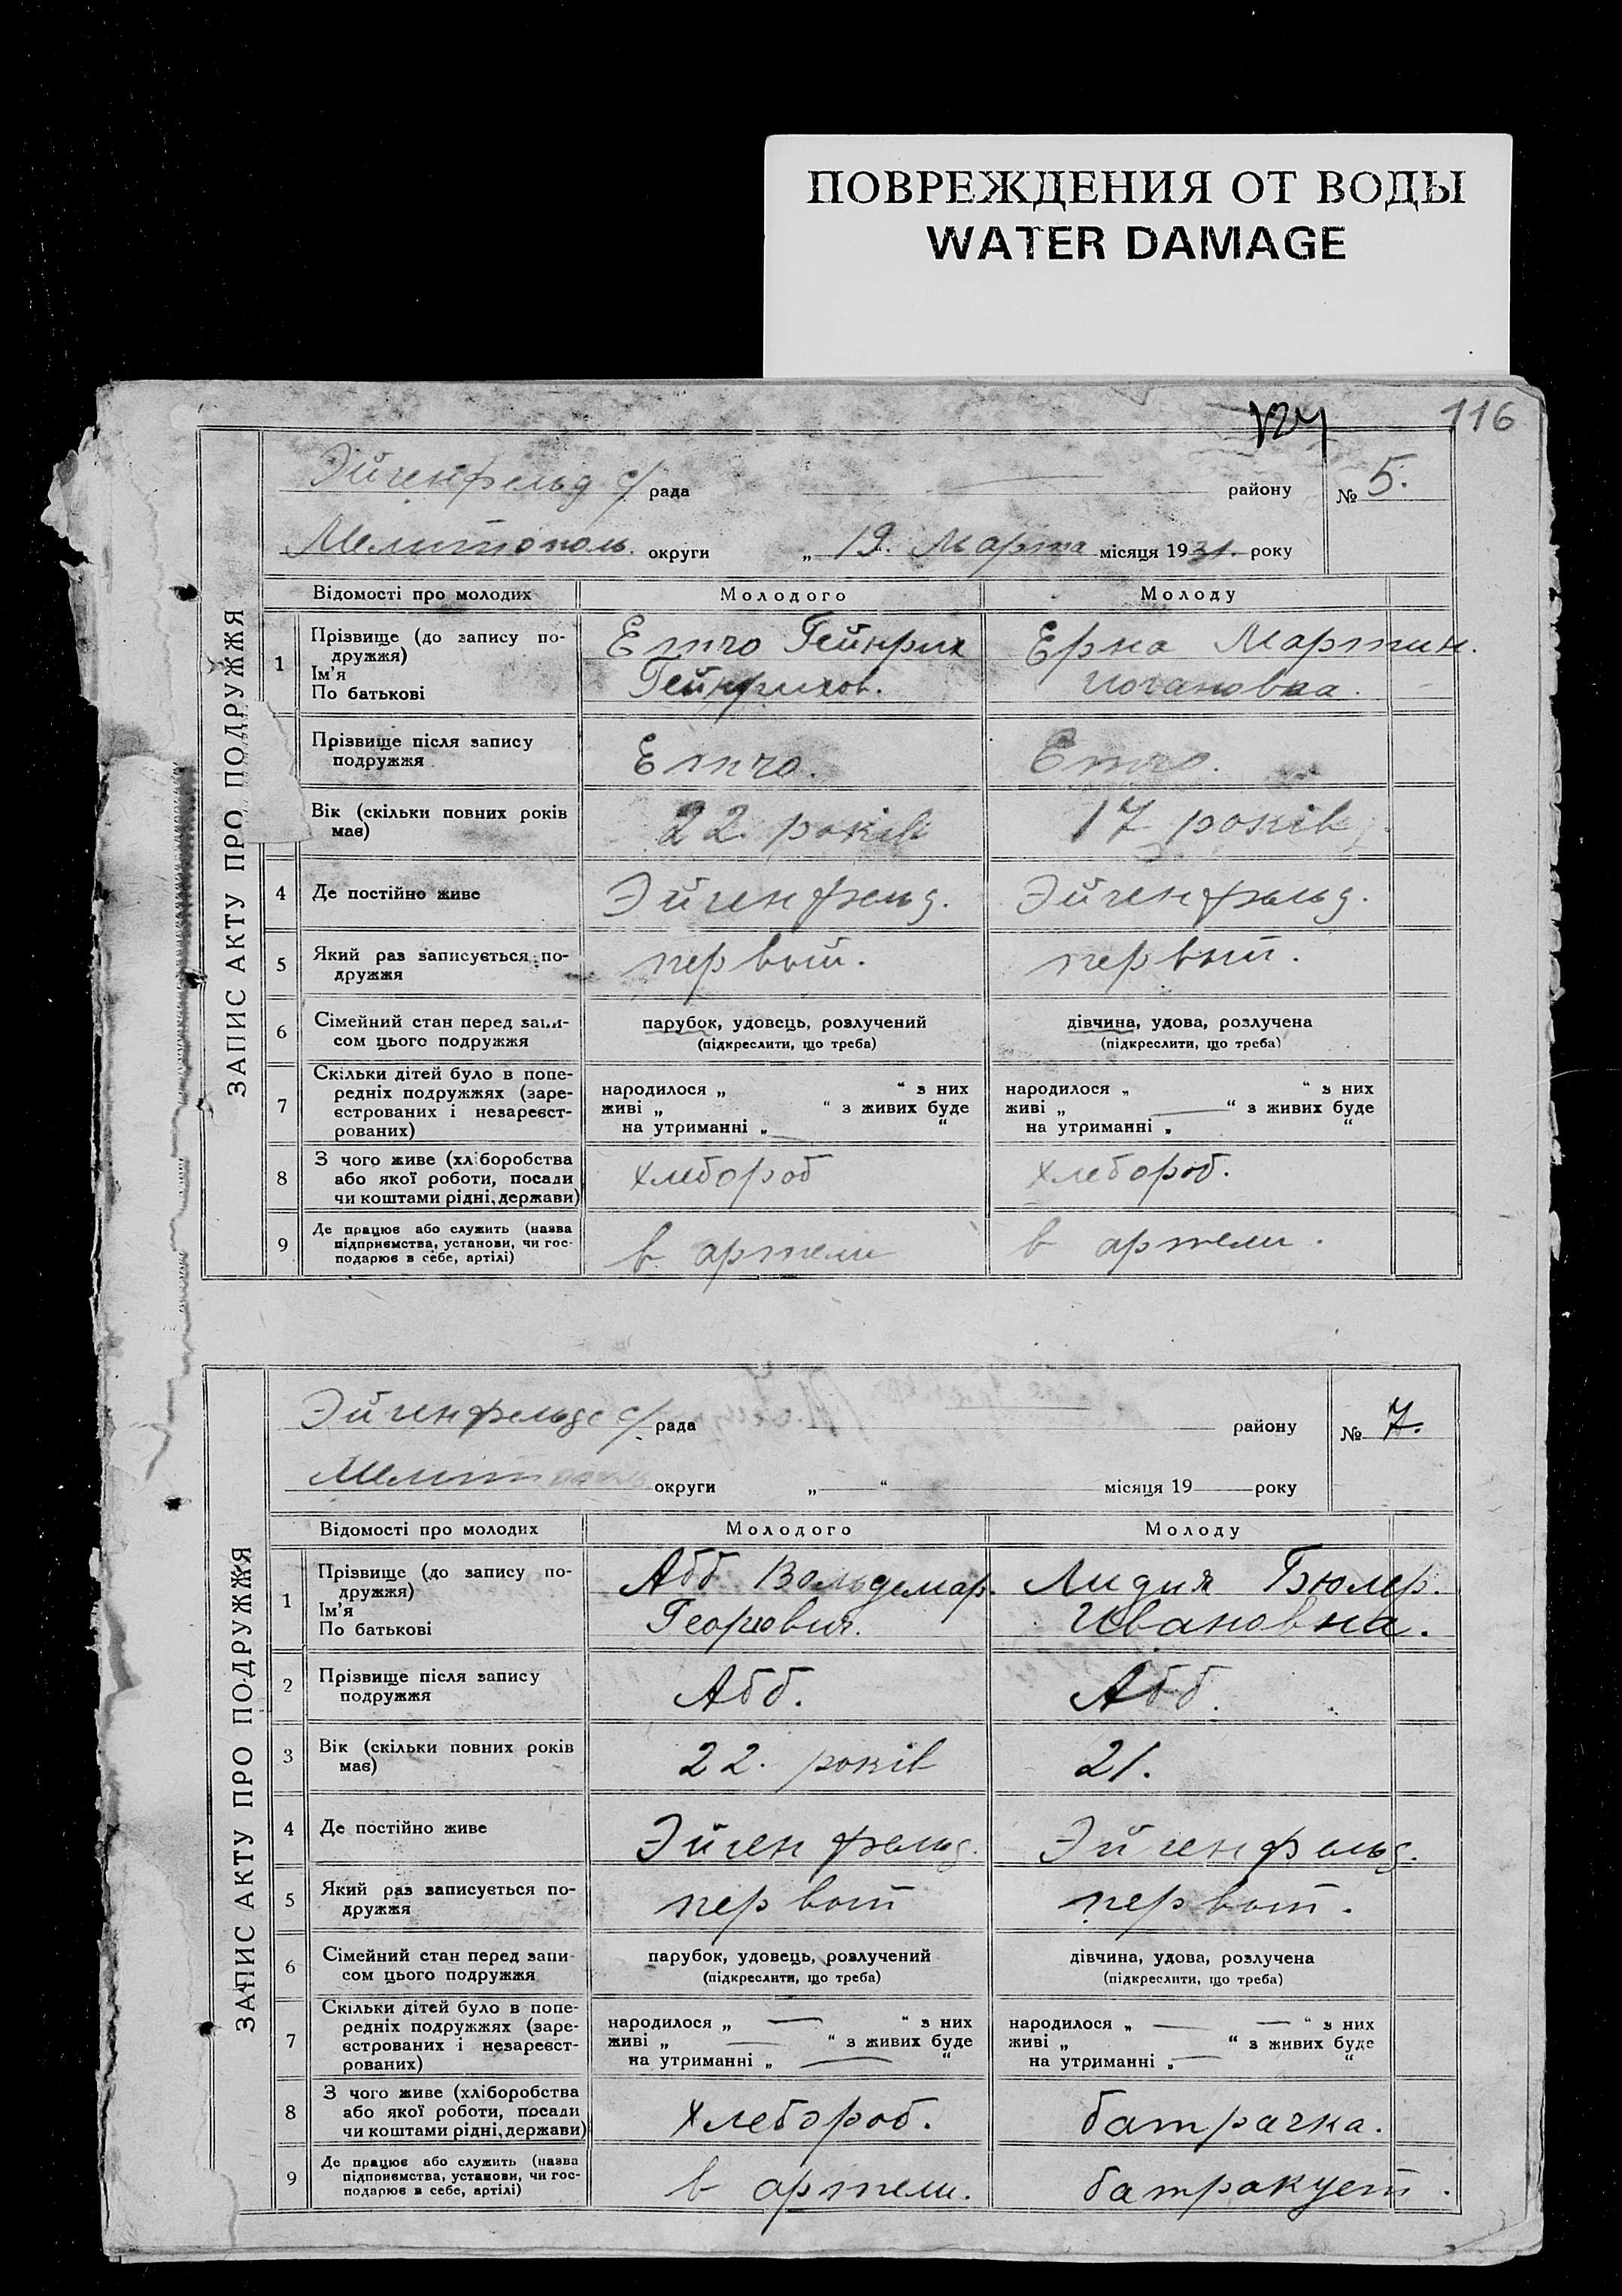 ПОВРЕЖДЕНИЯ ОТ ВОДЫ
WATER DAMAGE
124
116
ЗАПИС АКТУ ПРО ПОДРУЖЖЯ
Эйгенфельд с/ рада району № 5.
Мелитополь округи „ 19. Марта місяця 1931. року
Відомості про молодих Молодого Молоду
1 Прізвище (до запису по- Гейнрих Ерна Мартин.
дружжя)
Ім'я
По батькові Гейнрихов. Иогановна.
Прізвище після запису
подружжя
Вік (скільки повних років 22 років 17 років
має)
4 Де постійно живе Эйгенфельд. Эйгенфельд.
5 Який раз записується по- первый. первый.
дружжя
6 Сімейний стан перед запи- парубок, удовець, розлучений дівчина, удова, розлучена
сом цього подружжя (підкреслити, що треба) (підкреслити, що треба)
7 Скільки дітей було в попе-
редніх подружжях (заре- народилося „ “ з них народилося „ “ з них
єстрованих і незареєст- живі „ “ з живих буде живі „ “ з живих буде
рованих) на утриманні „ “ на утриманні „ “
8 З чого живе (хліборобства хлебороб хлебороб.
або якої роботи, посади
чи коштами рідні, держави)
9 Де працює або служить (назва в артели в артели.
підприємства, установи, чи гос-
подарює в себе, артілі)
ЗАПИС АКТУ ПРО ПОДРУЖЖЯ
Эйгенфельдс с/ рада району № 7.
округи „ “ місяця 19 року
Відомості про молодих Молодого Молоду
1 Прізвище (до запису по- Абб Вольдемар. Лидия Бюлер.
дружжя)
Ім'я
По батькові Георгович. Ивановна.
2 Прізвище після запису Абб. Абб.
подружжя
3 Вік (скільки повних років 22. років 21.
має)
4 Де постійно живе Эйгенфельд. Эйгенфельд.
5 Який раз записується по- первый первый.
дружжя
6 Сімейний стан перед запи- парубок, удовець, розлучений дівчина, удова, розлучена
сом цього подружжя (підкреслити, що треба) (підкреслити, що треба)
7 Скільки дітей було в попе-
редніх подружжях (заре- народилося „ “ з них народилося „ “ з них
єстрованих і незареєст- живі „ “ з живих буде живі „ “ з живих буде
рованих) на утриманні „ “ на утриманні „ “
8 З чого живе (хліборобства хлебороб. батрачка.
або якої роботи, посади
чи коштами рідні, держави)
9 Де працює або служить (назва в артели. батракует.
підприємства, установи, чи гос-
подарює в себе, артілі)